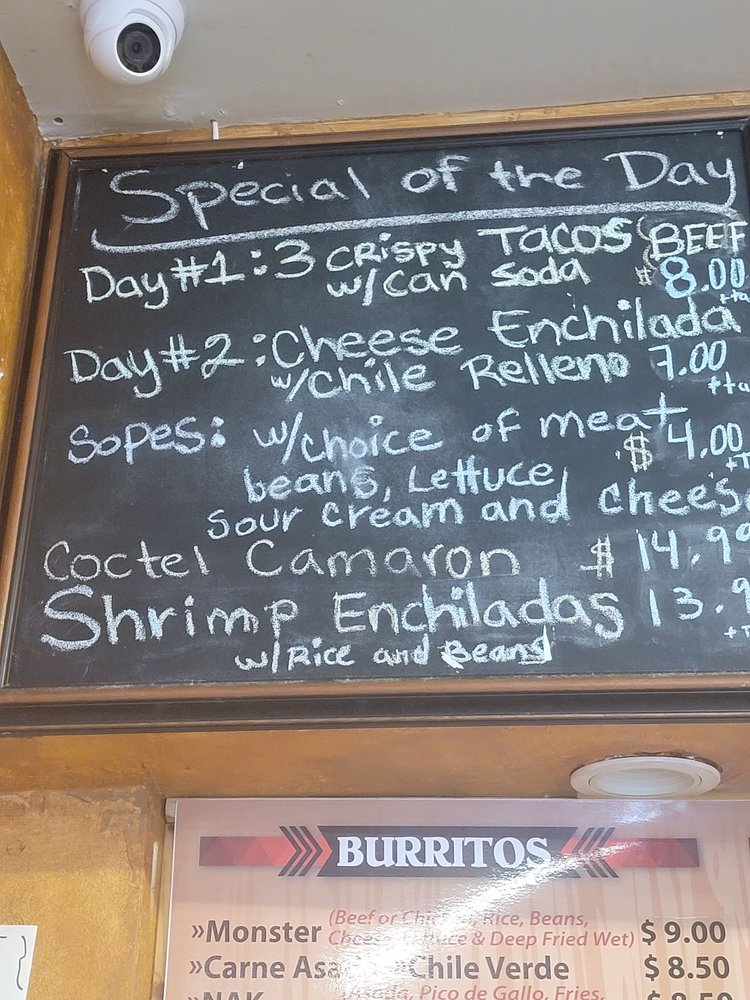 Special of the Day
Day#1: 3 CRISPY TACOS BEEF
w/can soda $8.00
Day#2: Cheese Enchilada
w/Chile Relleno 7.00
Sopes: w/choice of meat $4.00
beans, Lettuce
sour cream and chees
Coctel Camaron $14.99
Shrimp Enchiladas 13.9
w/Rice and Beans
BURRITOS
»Monster (Beef or Rice, Beans, $ 9.00
& Deep Fried Wet)
»Carne »Chile Verde $ 8.50
Pico de Gallo, Fries,